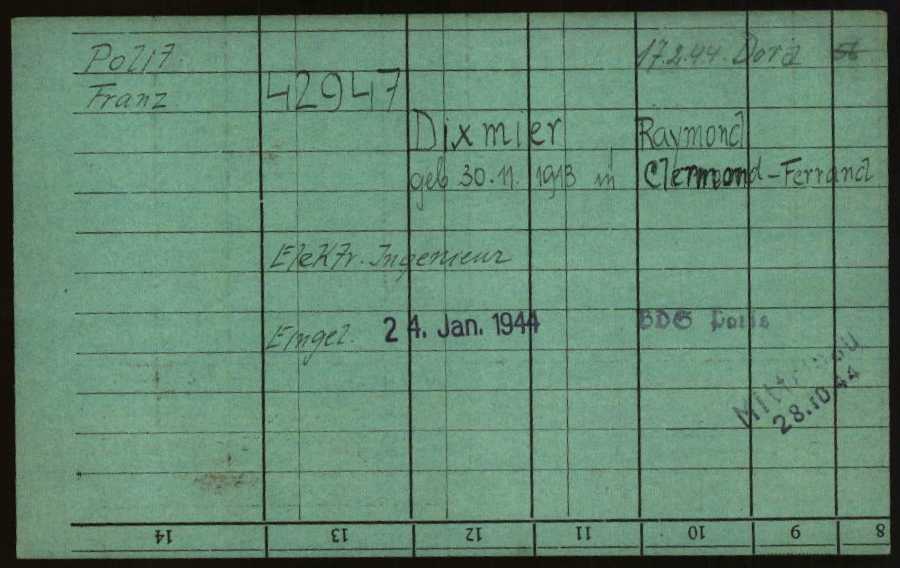 Polit. 17.2.44. Dora
Franz 42947
Dixmier Raymond
geb 30.11. 1913 in Clermond-Ferrand
Elektr. Ingenieur
Eingel. 24. Jan. 1944 BDS Paris
Mittelbau
28.10.44
14 13 12 11 10 9 8